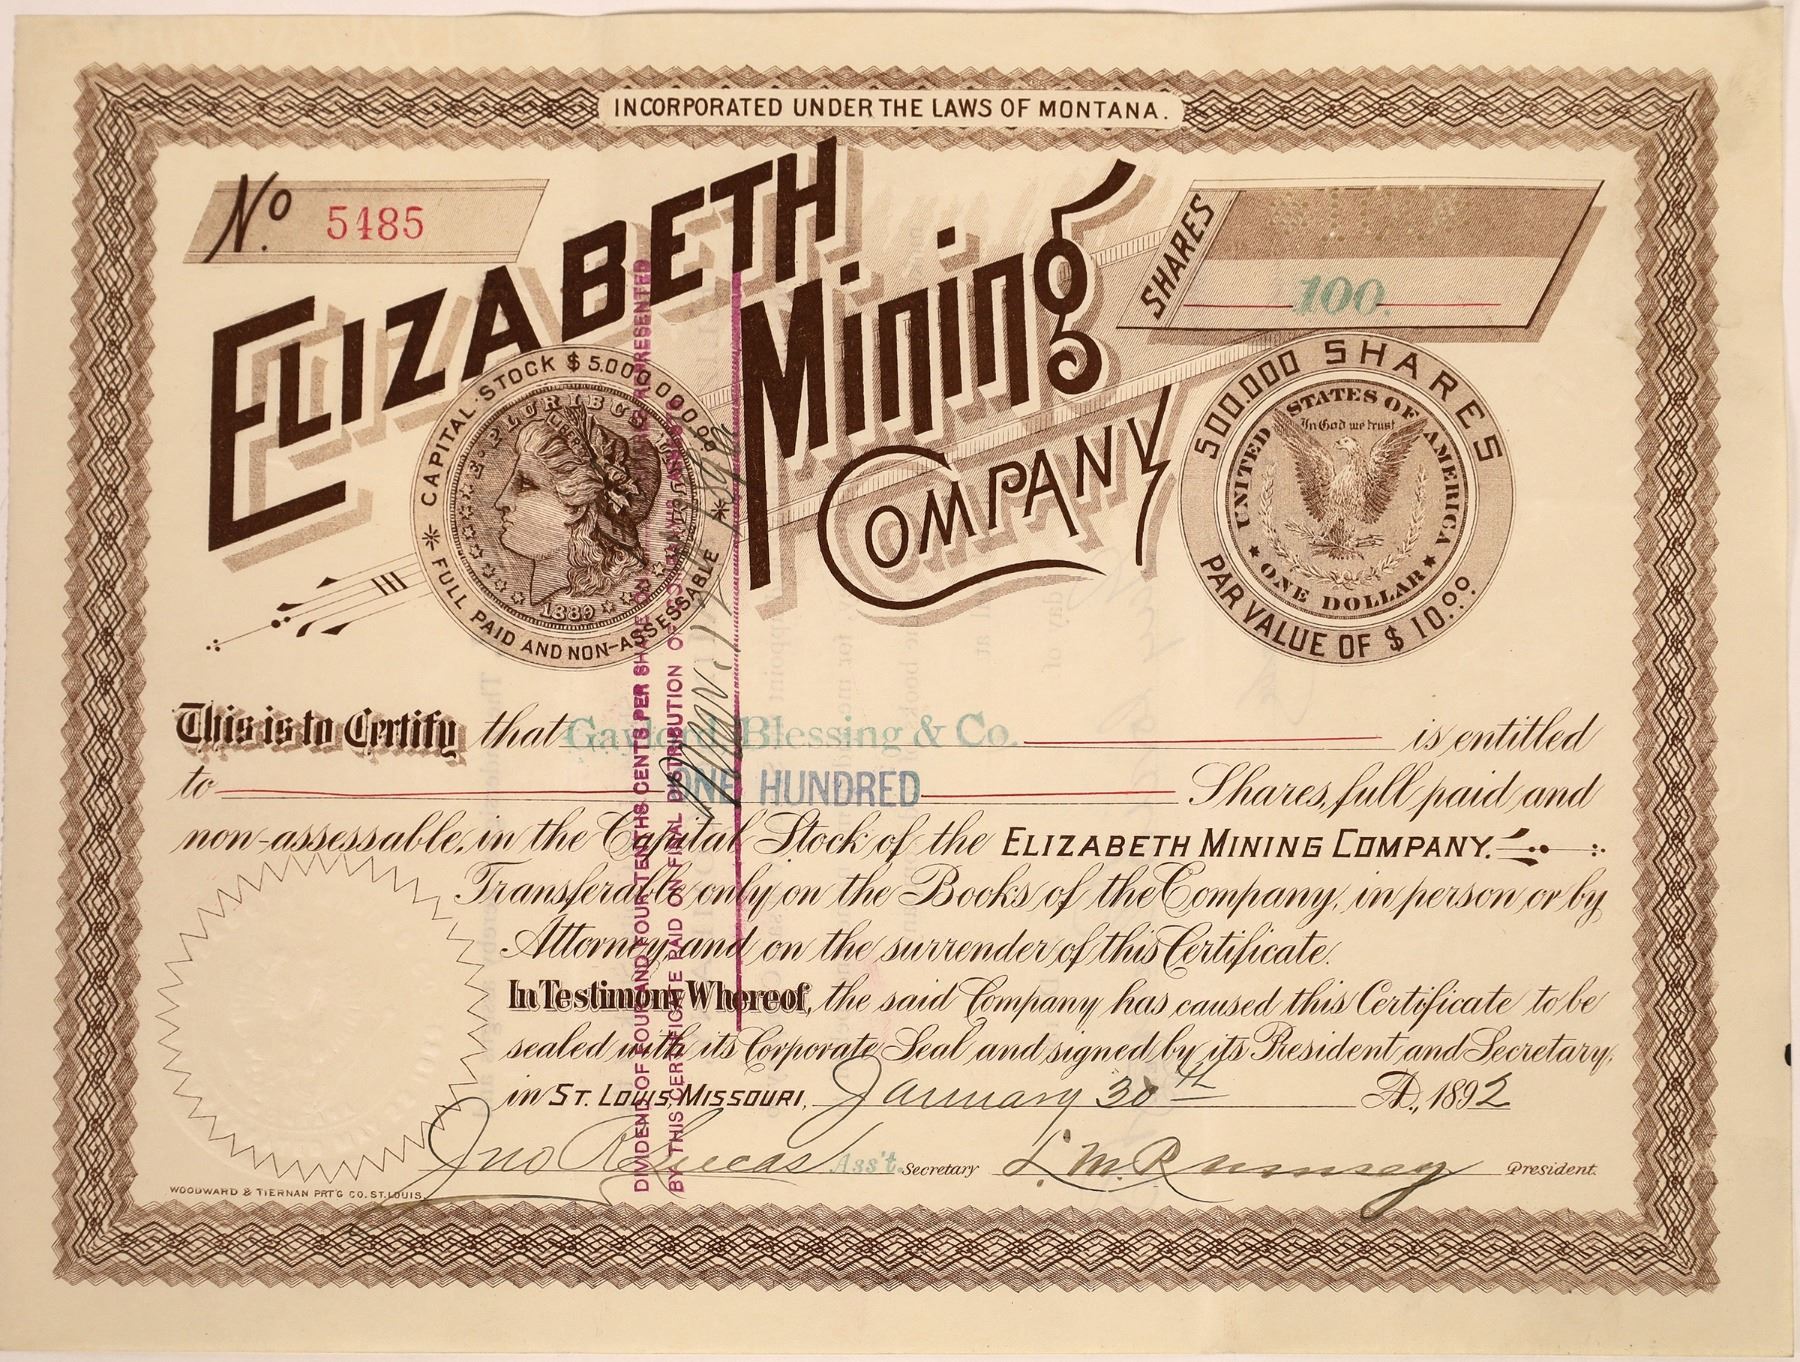 INCORPORATED UNDER THE LAWS OF MONTANA.
No. 5485
ELIZABETH
Mining
COMPANY
SHARES
100.
CAPITAL STOCK $5.000.000.00
FULL PAID AND NON-ASSESSABLE
E·PLURIBUS·UNUM
LIBERTY
1889
500.000 SHARES
PAR VALUE OF $10.00
UNITED STATES OF AMERICA
In God we trust
ONE DOLLAR
This is to Certify that Gaylord, Blessing & Co. is entitled
to ONE HUNDRED Shares, full paid and
non-assessable, in the Capital Stock of the ELIZABETH MINING COMPANY.
Transferable only on the Books of the Company, in person or by
Attorney and on the surrender of this Certificate.
In Testimony Whereof, the said Company has caused this Certificate to be
sealed with its Corporate Seal and signed by its President and Secretary,
in ST. LOUIS, MISSOURI, January 30th A.D., 1892
Jno R Lucas Ass't. Secretary L. M. Rumsey President.
WOODWARD & TIERNAN PRT'G CO. ST. LOUIS.
DIVIDEND OF FOUR AND FOUR TENTHS CENTS PER SHARE ON SHARES REPRESENTED
BY THIS CERTIFICATE PAID ON FINAL DISTRIBUTION OF COMPANY'S ASSETS